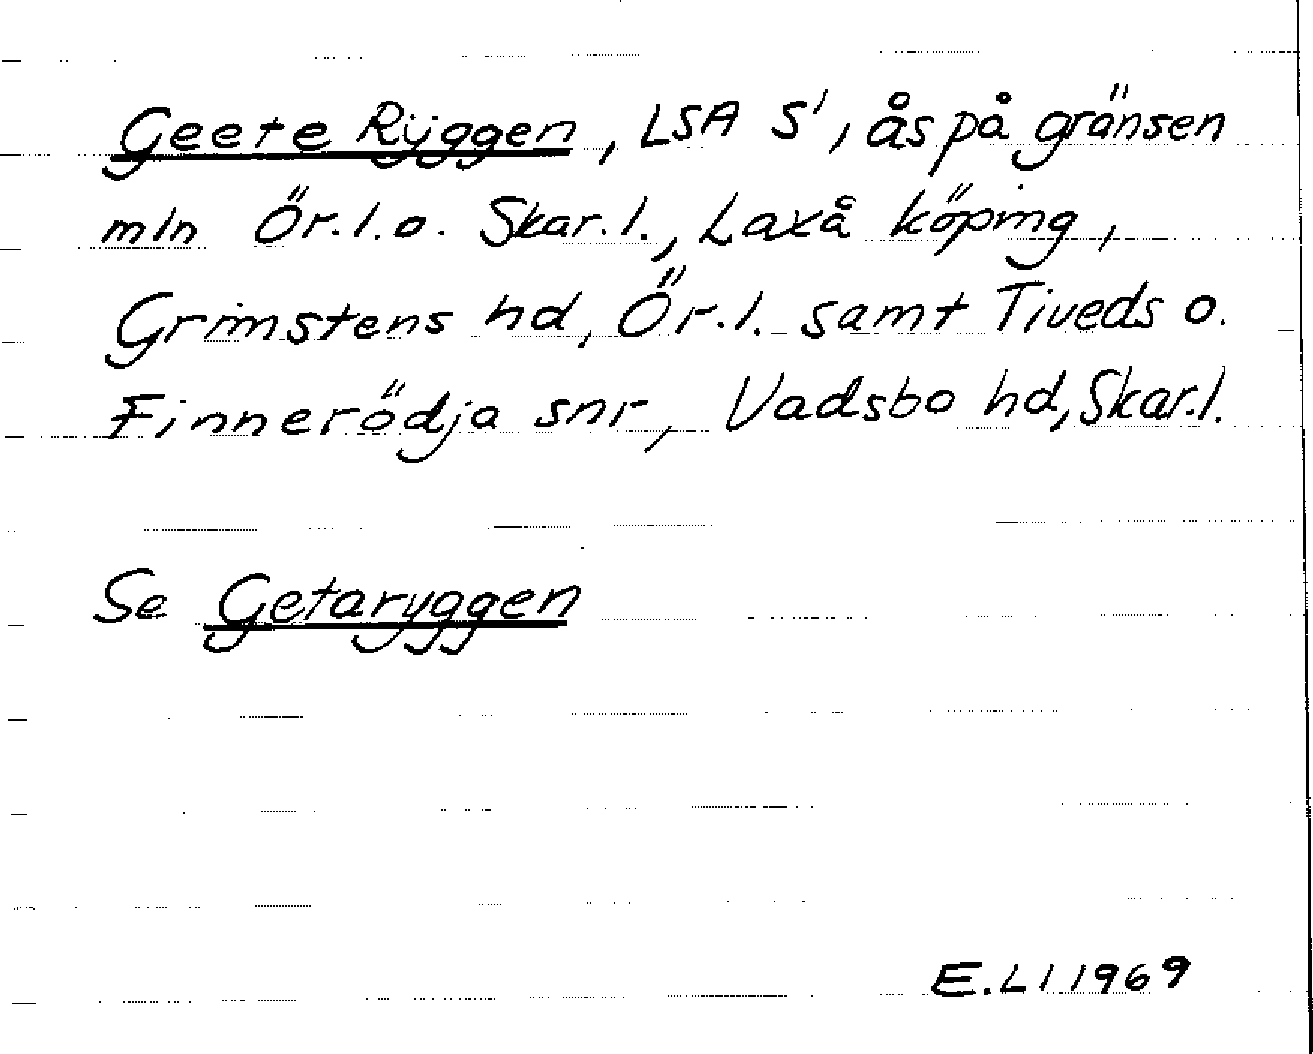 Geete Rÿggen, LSA S', ås på gränsen
mln Ör.l.o. Skar.l., Laxå köping,
Grimstens hd, Ör.l. samt Tiveds o.
Finnerödja snr, Vadsbo hd, Skar.l.
Se Getaryggen
E.Ll 1969